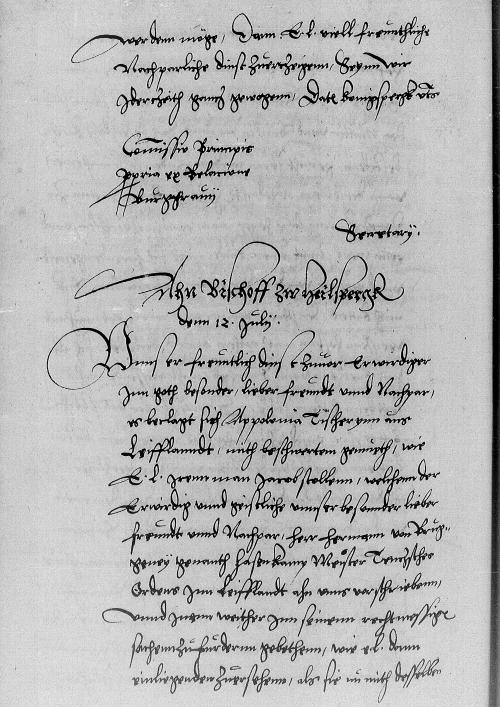 werdenn möge, Dann E. l. viell freuntliche
Nachparliche dinst zuerzeigenn, Seynn wir
Jderzeith gantz gewogenn, Dat. konigspergk uts
Commissio Principis
ppria ex Relacione
Burggravij
Secretarij.
Ahn Bischoff zw Heilspergk
denn 12. Julij.
Unnser freuntlich dinst zuuor Erwirdiger
Jnn goth besonder, lieber freundt unnd Nachpar,
es beclagt sich Appolonia Tischerynn aus
Leifflanndt, mith beschwertem gemuth, wie
E. l. Jrenn man Jacob stollenn, welchenn der
Erwirdig unnd geistliche unnser besonder lieber
freundt unnd Nachpar, herr herman von Brug-
geney genanth Hasenkamp Meister Teutzsches
Ordens Jnn Leifflandt ahn unns vorschriebenn,
unnd Jnenn weither Jnn seinenn rechtmessige
sachenn zufurdernn gebethenn, wie e. l. dann
einligendt zuersehenn, als sie nu mith desselben